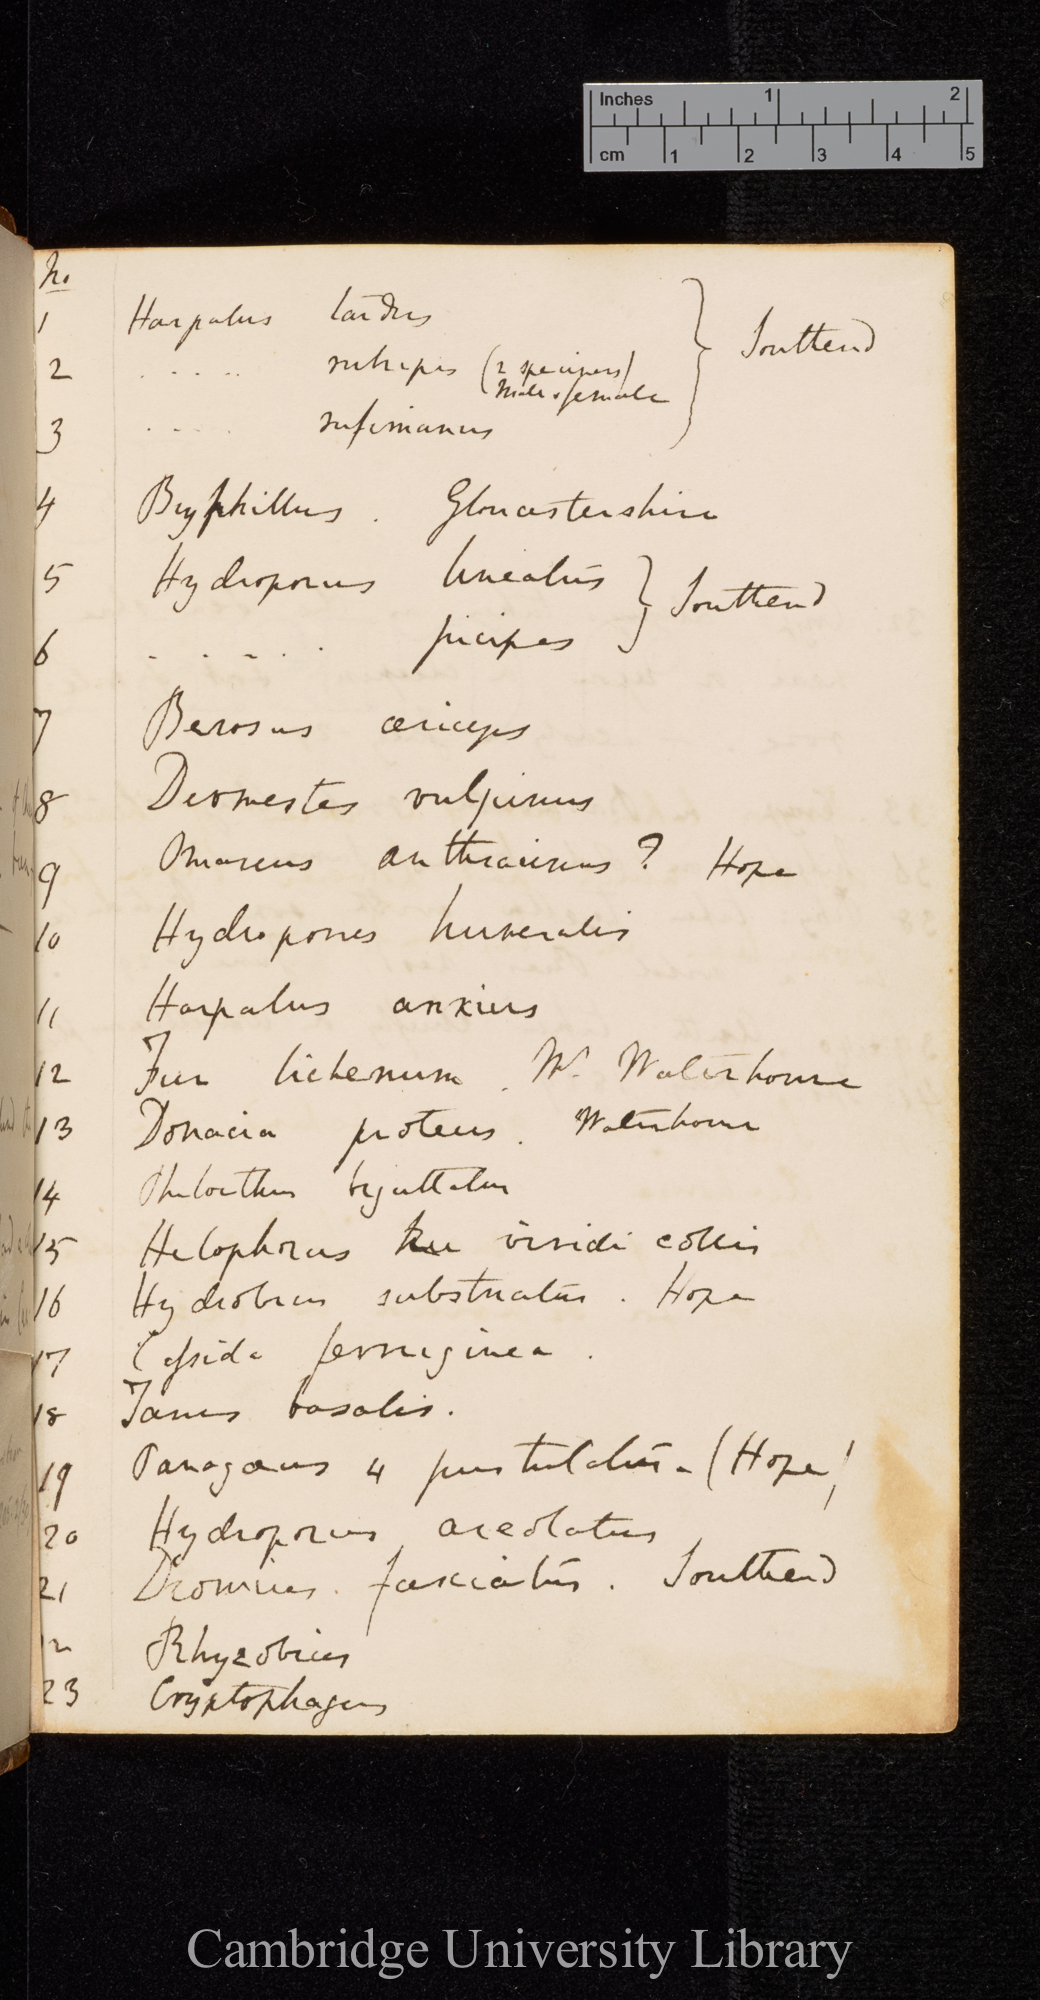 Inches 1 2
cm 1 2 3 4 5
No
1 Harpalus tardus } Southend
2 . . . . . rubripes (2 specimens)
male & female
3 . . . . rufimanus
4 Byphillus . Gloucestershire
5 Hydroporus lineatus } Southend
6 . . . . . picipes
7 Berosus æriceps
8 Dermestes vulpinus
9 Omaseus anthracinus ? Hope
10 Hydroporus humeralis
11 Harpalus anxius
12 Fur lichenum . Mr. Waterhouse
13 Donacia proteus . Waterhouse
14 Philonthus biguttatus
15 Helophorus viridi collis
16 Hydrobius substriatus . Hope
17 Cassida ferruginea .
18 basalis .
19 Panagæus 4 pustulatus - (Hope)
20 Hydroporus areolatus
21 Dromius . fasciatus . Southend
22 Rhyzobius
23 Cryptophagus
Cambridge University Library